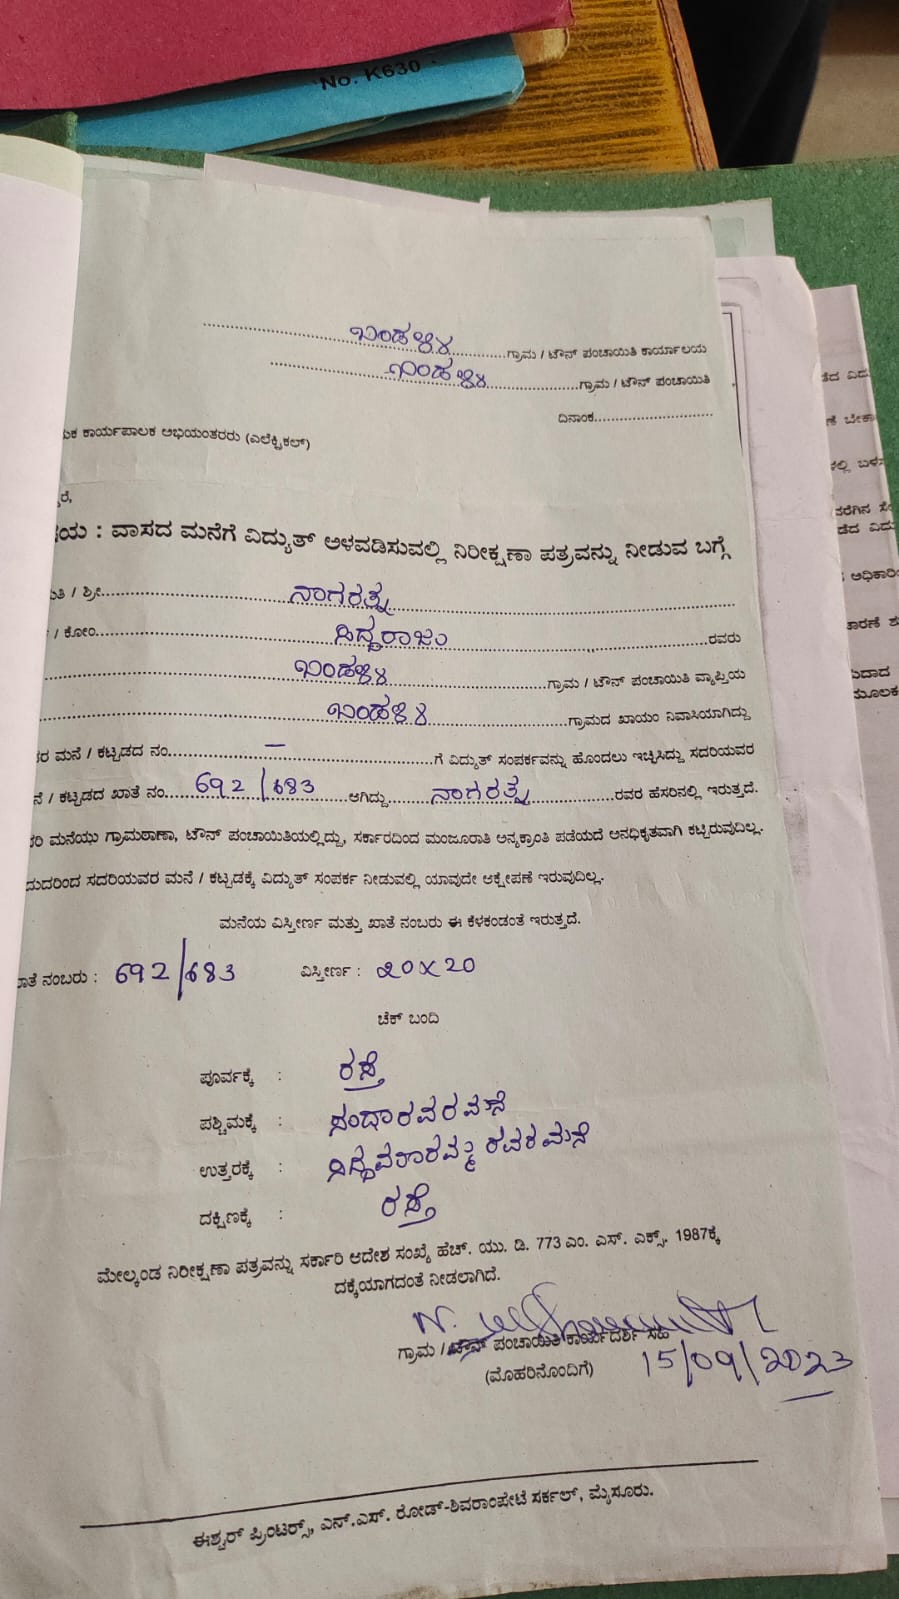 No. K630
ಬಂಡಳ್ಳಿ ಗ್ರಾಮ / ಟೌನ್ ಪಂಚಾಯಿತಿ ಕಾರ್ಯಾಲಯ
ಬಂಡಳ್ಳಿ ಗ್ರಾಮ / ಟೌನ್ ಪಂಚಾಯಿತಿ
ದಿನಾಂಕ
ಕಾರ್ಯಪಾಲಕ ಅಭಿಯಂತರರು (ಎಲೆಕ್ಟ್ರಿಕಲ್)
: ವಾಸದ ಮನೆಗೆ ವಿದ್ಯುತ್ ಅಳವಡಿಸುವಲ್ಲಿ ನಿರೀಕ್ಷಣಾ ಪತ್ರವನ್ನು ನೀಡುವ ಬಗ್ಗೆ
/ ಶ್ರೀ ನಾಗರತ್ನ
/ ಕೋಂ ಸಿದ್ದರಾಜು ರವರು
ಬಂಡಳ್ಳಿ ಗ್ರಾಮ / ಟೌನ್ ಪಂಚಾಯಿತಿ ವ್ಯಾಪ್ತಿಯ
ಬಂಡಳ್ಳಿ ಗ್ರಾಮದ ಖಾಯಂ ನಿವಾಸಿಯಾಗಿದ್ದು
ಮನೆ / ಕಟ್ಟಡದ ನಂ. – ಗೆ ವಿದ್ಯುತ್ ಸಂಪರ್ಕವನ್ನು ಹೊಂದಲು ಇಚ್ಛಿಸಿದ್ದು ಸದರಿಯವರ
/ ಕಟ್ಟಡದ ಖಾತೆ ನಂ. 692/683 ಆಗಿದ್ದು ನಾಗರತ್ನ ರವರ ಹೆಸರಿನಲ್ಲಿ ಇರುತ್ತದೆ.
ಮನೆಯು ಗ್ರಾಮಠಾಣಾ, ಟೌನ್ ಪಂಚಾಯಿತಿಯಲ್ಲಿದ್ದು, ಸರ್ಕಾರದಿಂದ ಮಂಜೂರಾತಿ ಅನ್ಯಕ್ರಾಂತಿ ಪಡೆಯದೆ ಅನಧಿಕೃತವಾಗಿ ಕಟ್ಟಿರುವುದಿಲ್ಲ.
ಸದರಿಯವರ ಮನೆ / ಕಟ್ಟಡಕ್ಕೆ ವಿದ್ಯುತ್ ಸಂಪರ್ಕ ನೀಡುವಲ್ಲಿ ಯಾವುದೇ ಆಕ್ಷೇಪಣೆ ಇರುವುದಿಲ್ಲ.
ಮನೆಯ ವಿಸ್ತೀರ್ಣ ಮತ್ತು ಖಾತೆ ನಂಬರು ಈ ಕೆಳಕಂಡಂತೆ ಇರುತ್ತದೆ.
ನಂಬರು : 692/683 ವಿಸ್ತೀರ್ಣ : 20x20
ಚೆಕ್ ಬಂದಿ
ಪೂರ್ವಕ್ಕೆ : ರಸ್ತೆ
ಪಶ್ಚಿಮಕ್ಕೆ : ರವರ ಮನೆ
ಉತ್ತರಕ್ಕೆ : ರವರ ಮನೆ
ದಕ್ಷಿಣಕ್ಕೆ : ರಸ್ತೆ
ಮೇಲ್ಕಂಡ ನಿರೀಕ್ಷಣಾ ಪತ್ರವನ್ನು ಸರ್ಕಾರಿ ಆದೇಶ ಸಂಖ್ಯೆ ಹೆಚ್. ಯು. ಡಿ. 773 ಎಂ. ಎಸ್. ಎಕ್ಸ್. 1987ಕ್ಕೆ
ದಕ್ಕೆಯಾಗದಂತೆ ನೀಡಲಾಗಿದೆ.
ಗ್ರಾಮ / ಟೌನ್ ಪಂಚಾಯಿತಿ ಕಾರ್ಯದರ್ಶಿ ಸಹಿ
(ಮೊಹರಿನೊಂದಿಗೆ) 15/09/2023
ಈಶ್ವರ್ ಪ್ರಿಂಟರ್ಸ್, ಎನ್.ಎಸ್. ರೋಡ್-ಶಿವರಾಂಪೇಟೆ ಸರ್ಕಲ್, ಮೈಸೂರು.